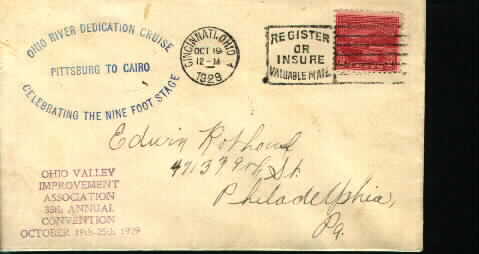 OHIO RIVER DEDICATION CRUISE
PITTSBURGH TO CAIRO
CELEBRATING THE NINE FOOT STAGE
CINCINNATI, OHIO
OCT 19
12-M
1929
REGISTER
OR
INSURE
VALUABLE MAIL
Edwin
St.
Philadelphia,
Pa.
OHIO VALLEY
IMPROVEMENT
ASSOCIATION
35th ANNUAL
CONVENTION
OCTOBER 19th-25th 1929